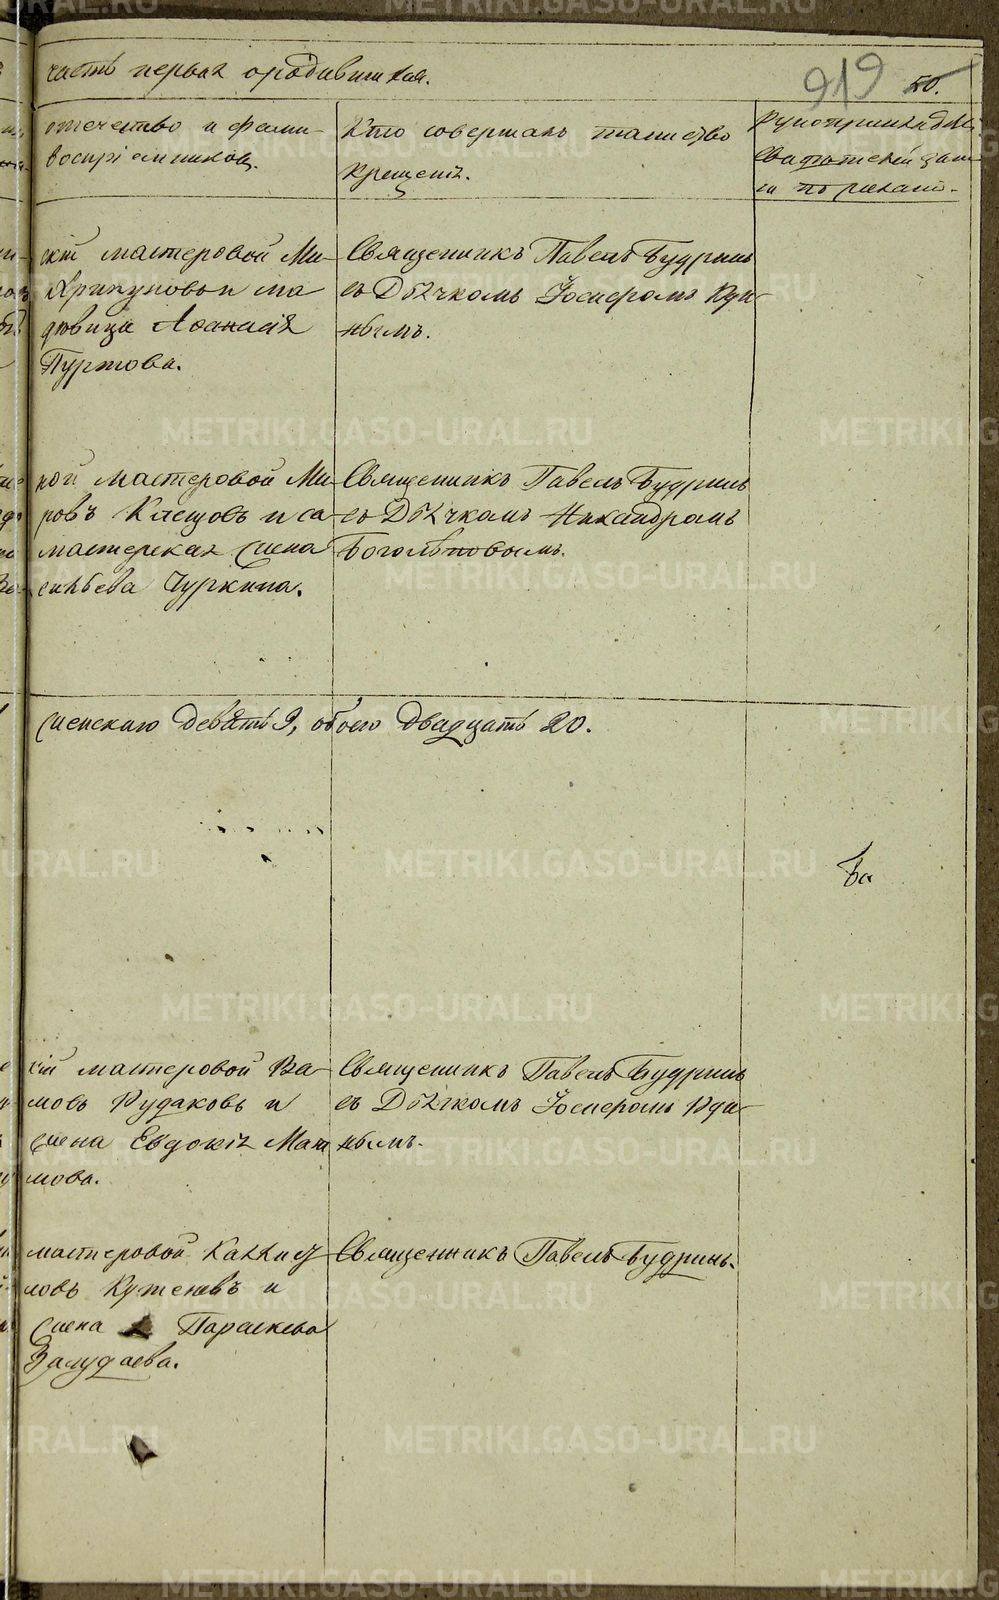 часть первая ородившихся.
919 50.
отчество и фами-
воспріемниковъ.
Кто совершалъ таинство
крещенія.
Рукоприкладство
свидѣтелей запи-
си по желанію.
скій мастеровой Ми-
Крикуновъ и ма
довица Афанасія
Пуртова.
Священникъ Павелъ Будринъ
съ Дьячкомъ
нымъ.
ной мастеровой Ми-
ровъ Клещовъ и са
мастерская жена
сильева Чуркина.
Священникъ Павелъ Будринъ
съ Дьячкомъ Никандромъ
Боголѣповымъ.
женскаго девять 9, обоего двадцать 20.
Ба
кій мастеровой Ва-
мовъ Рудаковъ и
жена Евдокія Мак
мова.
Священникъ Павелъ Будринъ
съ Дьячкомъ
нымъ.
мастеровой
ловъ Кутеневъ и
жена Параскева
Залудаева.
Священникъ Павелъ Будринъ.
METRIKI.GASO-URAL.RU